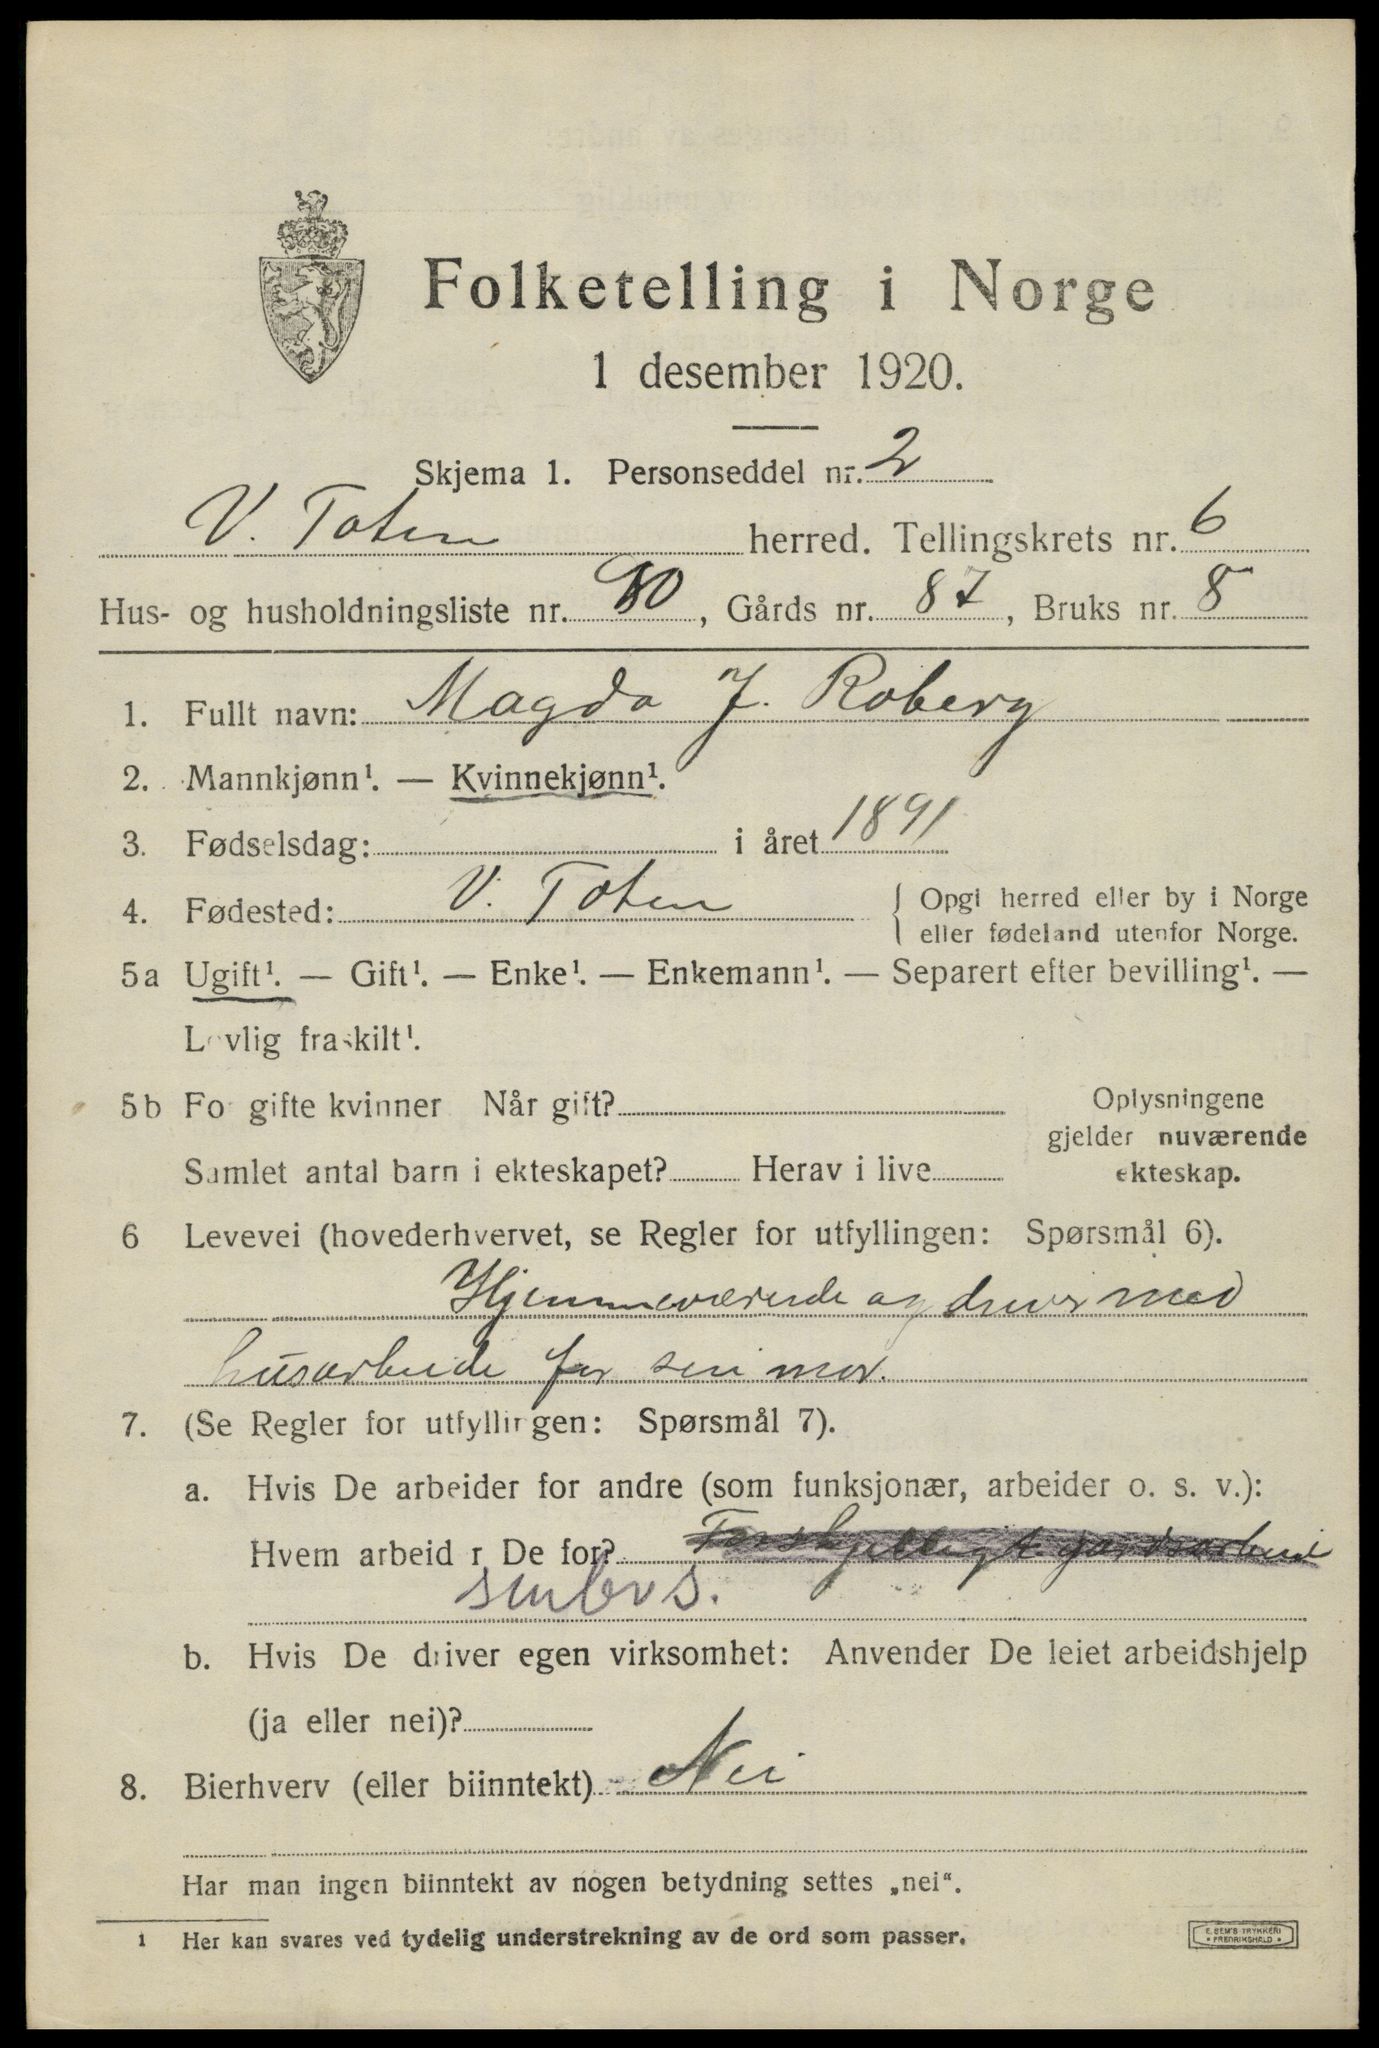 Folketelling i Norge
1 desember 1920.
Skjema 1. Personseddel nr. 2
V. Toten herred. Tellingskrets nr. 6
Hus- og husholdningsliste nr. 90, Gårds nr. 87, Bruks nr. 8
1. Fullt navn: Magda J. Roberg
2. Mannkjønn¹. — Kvinnekjønn¹.
3. Fødselsdag: i året 1891
4. Fødested: V. Toten { Opgi herred eller by i Norge
eller fødeland utenfor Norge.
5a Ugift¹. — Gift¹. — Enke¹. — Enkemann¹. — Separert efter bevilling¹. —
Lovlig fraskilt¹.
5b For gifte kvinner Når gift? Oplysningene
gjelder nuværende
Samlet antal barn i ekteskapet? Herav i live ekteskap.
6 Levevei (hovederhvervet, se Regler for utfyllingen: Spørsmål 6).
Hjemmeværende og driver med
husarbeide for sin mor.
7. (Se Regler for utfyllingen: Spørsmål 7).
a. Hvis De arbeider for andre (som funksjonær, arbeider o. s. v.):
Hvem arbeider De for? Forskjelligt gardsarbeid
b. Hvis De driver egen virksomhet: Anvender De leiet arbeidshjelp
(ja eller nei)?
8. Bierhverv (eller biinntekt) Nei
Har man ingen biinntekt av nogen betydning settes „nei“.
1 Her kan svares ved tydelig understrekning av de ord som passer.
E. SEM'S TRYKKERI
• FREDRIKSHALD •